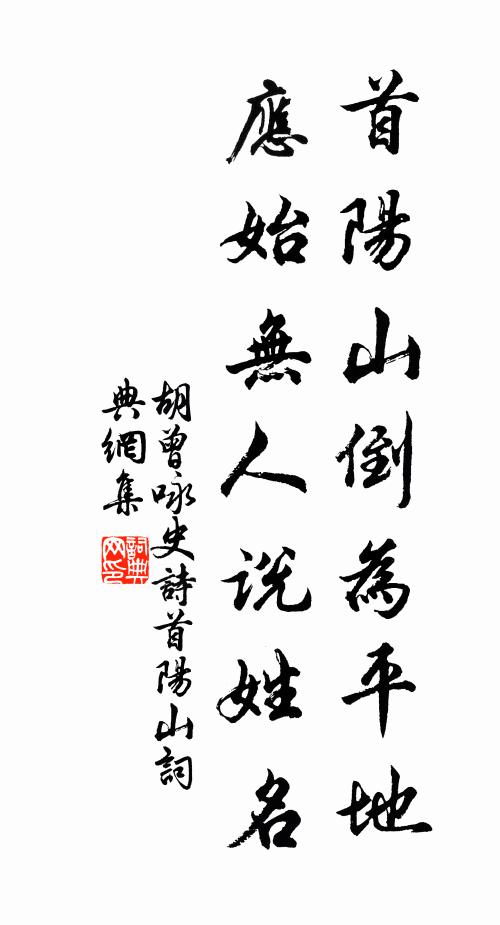 首陽山倒為平地
應始無人說姓名
胡曾咏史詩首陽山詞
典網集
詞典網印